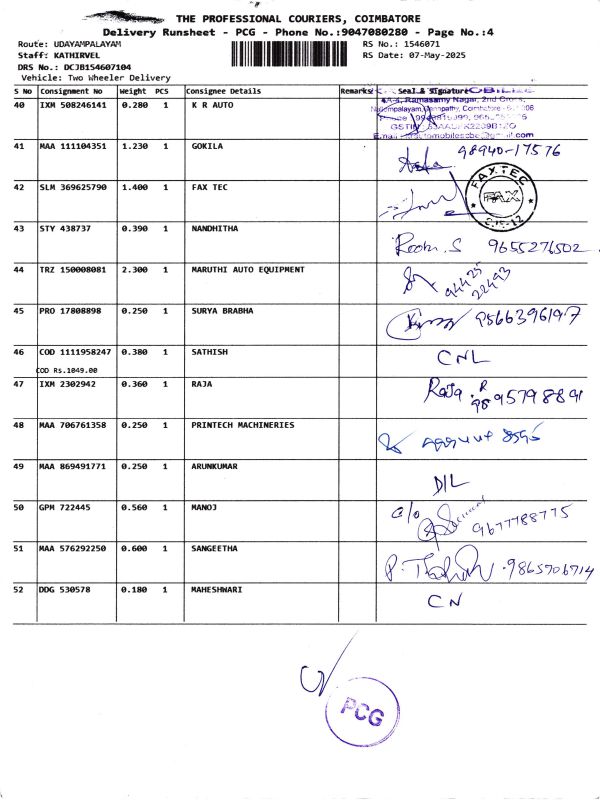 THE PROFESSIONAL COURIERS, COIMBATORE
Delivery Runsheet - PCG - Phone No.:9047080280 - Page No.:4
Route: UDAYAMPALAYAM RS No.: 1546071
Staff: KATHIRVEL RS Date: 07-May-2025
DRS No.: DCJB154607104
Vehicle: Two Wheeler Delivery
S No Consignment No Weight PCS Consignee Details Remarks Seal & Signature
40 IXM 508246141 0.280 1 K R AUTO
4A-4, Ramasamy Nagar, 2nd Cross,
41 MAA 111104351 1.230 1 GOKILA 98940-17576
42 SLM 369625790 1.400 1 FAX TEC FAXTEC FAX
43 STY 438737 0.390 1 NANDHITHA 9655276502
44 TRZ 150008081 2.300 1 MARUTHI AUTO EQUIPMENT 94425
22493
45 PRO 17808898 0.250 1 SURYA BRABHA 9566396197
46 COD 1111958247 0.380 1 SATHISH CNL
COD Rs.1049.00
47 IXM 2302942 0.360 1 RAJA Raja. R
9895798891
48 MAA 706761358 0.250 1 PRINTECH MACHINERIES
49 MAA 869491771 0.250 1 ARUNKUMAR D/L
50 GPM 722445 0.560 1 MANOJ c/o 9677788775
51 MAA 576292250 0.600 1 SANGEETHA 9865706714
52 DDG 530578 0.180 1 MAHESHWARI CN
PCG